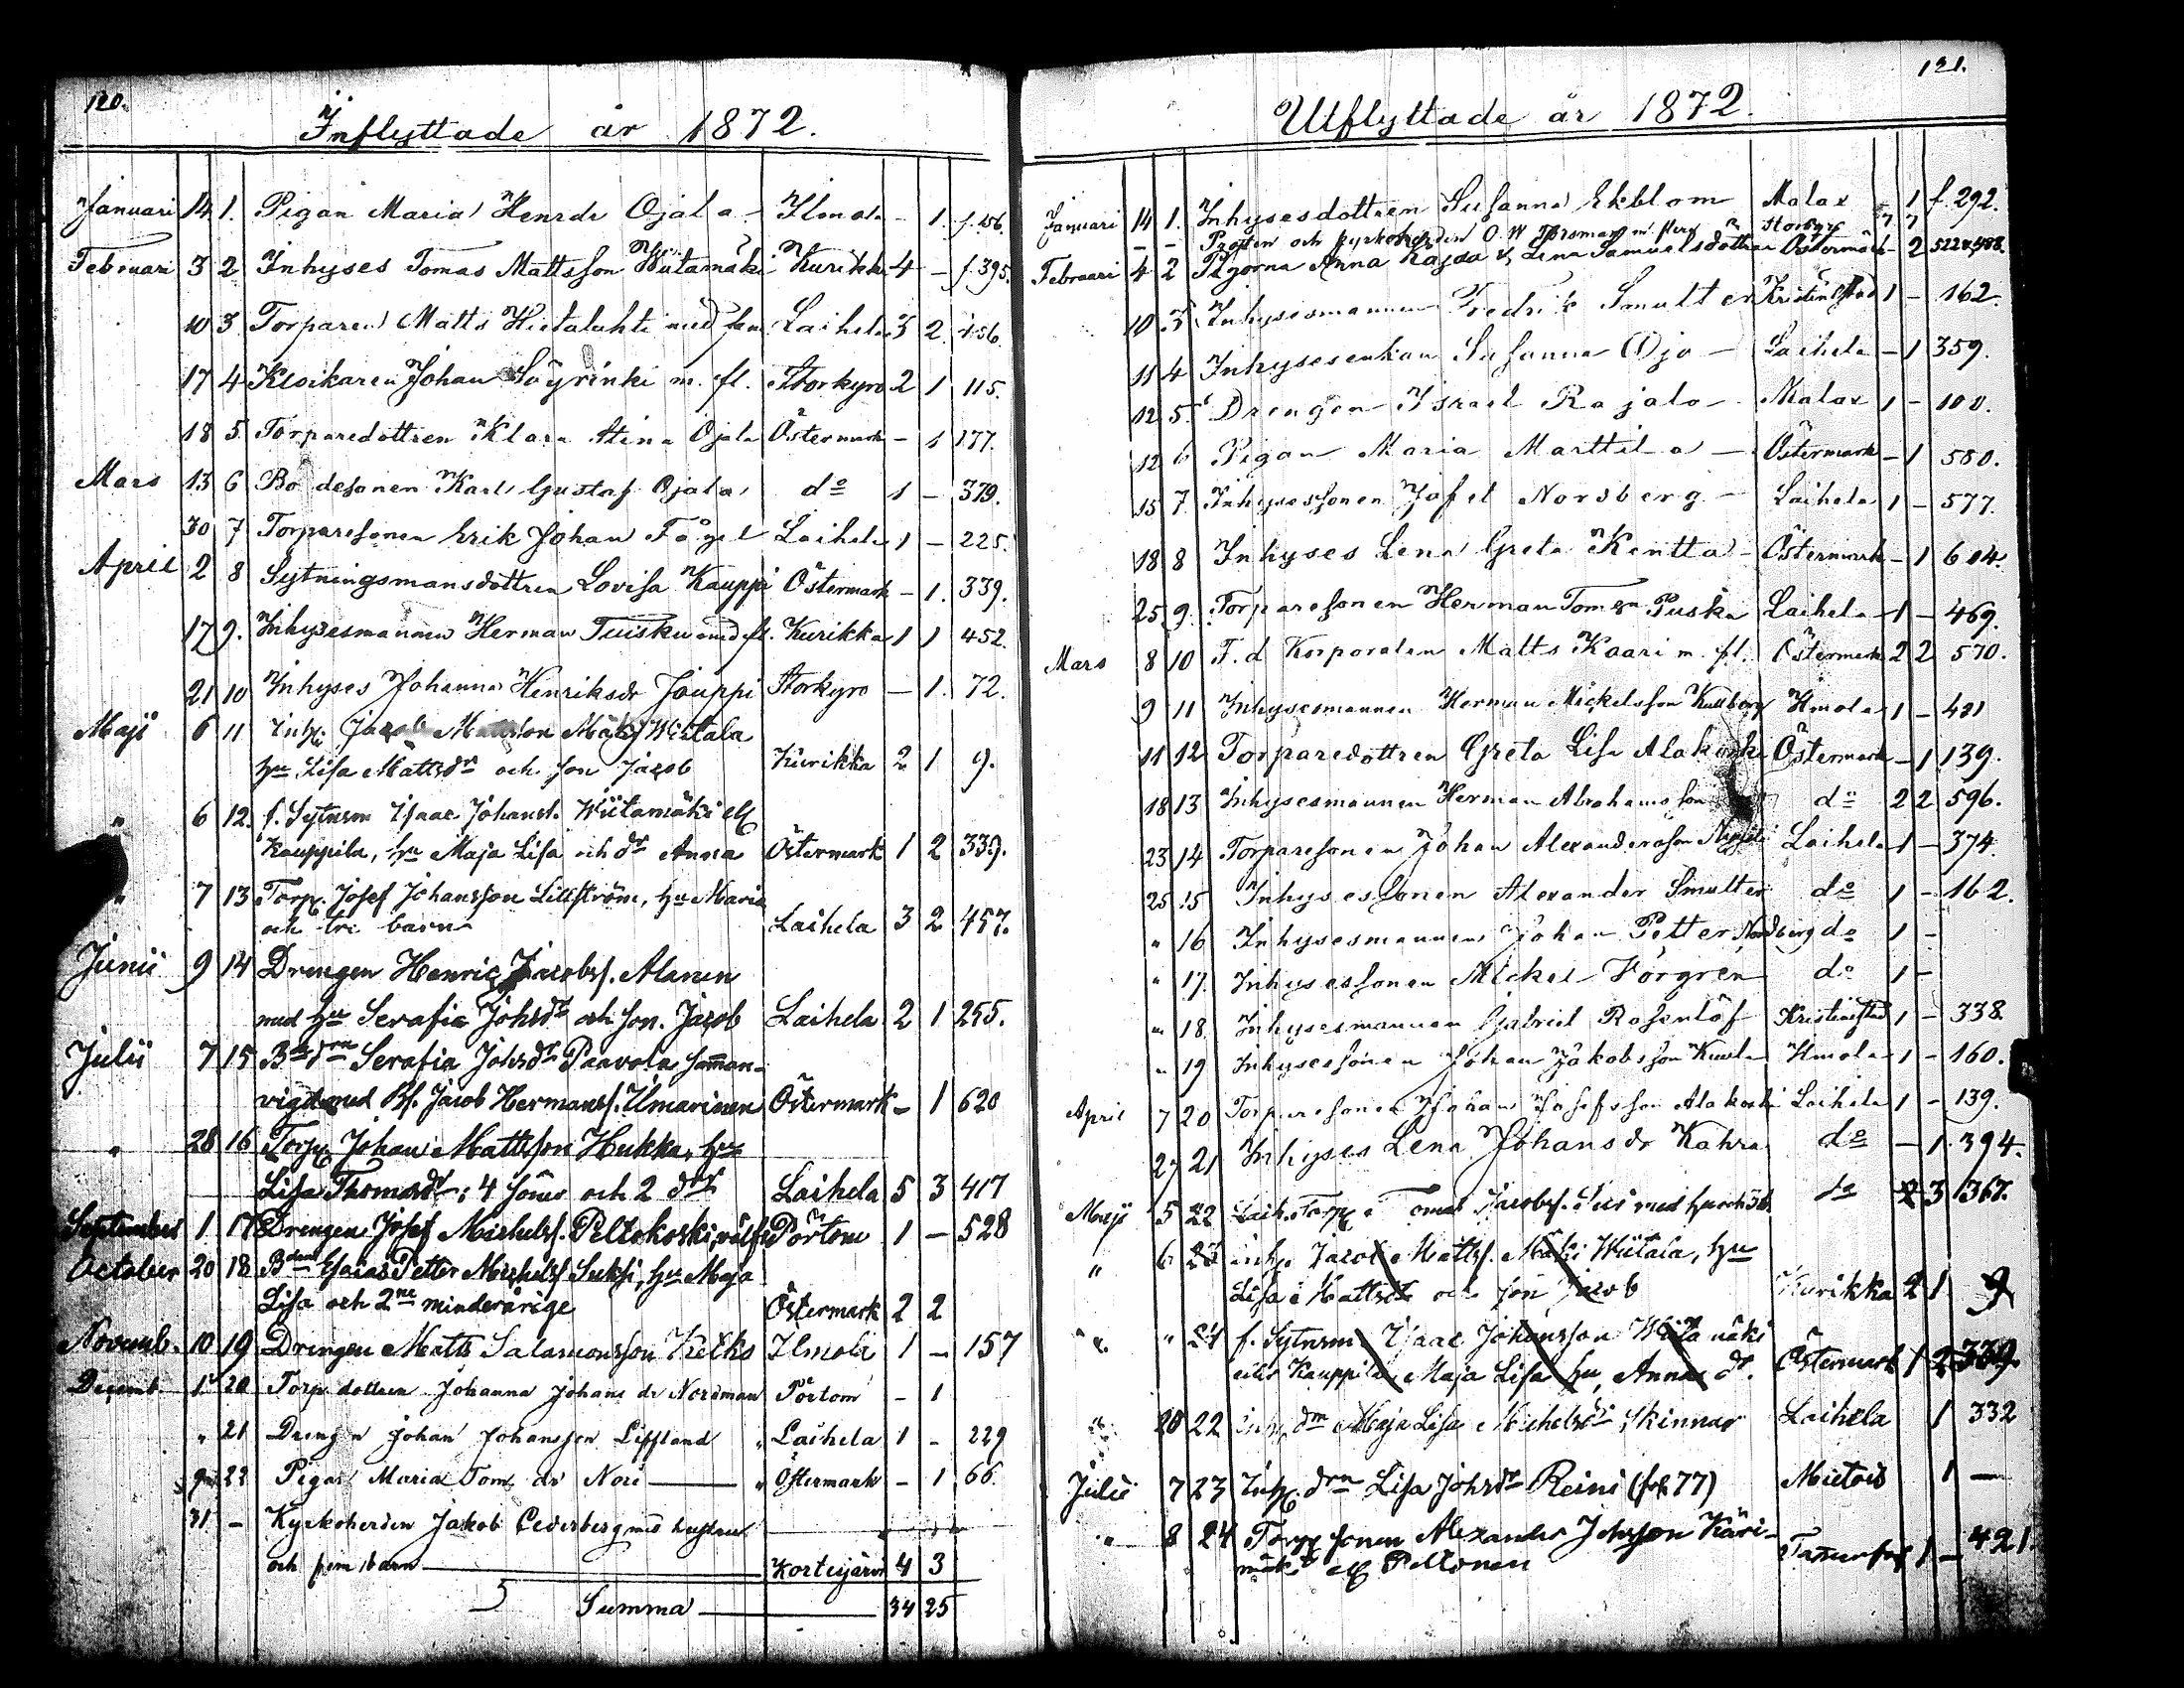 120.
Inflyttade år 1872.
Januari 14 1. Pigan Maria Henrdr Ojala - Ilmola - 1. f. 156.
Februari 3 2 Inhyses Tomas Mattsson Wiitamäki - Kurikka 4 - f. 395.
10 3. Torparen Matts Hietalahti med fam Laihela 3 2. 156.
17 4 Johan Säyrinki m. fl. Storkyro 2 1 115.
18 5. Torparedottren Klara Stina Ojala Östermark - 1 177.
Mars 13 6 Bondesonen Karl Gustaf Ojala do 1 - 379.
30 7 Torparesonen Erik Johan Fågel Laihela 1 - 225.
April 2 8 Sytningsmansdottren Lovisa Kauppi Östermark - 1. 339.
17 9. Inhysesmannen Herman Tuisku med fl. Kurikka 1 1 452.
21 10 Inhyses Johanna Henriksdr Jouppi Storkyro - 1. 72.
Maji 6 11 Inh. Jacob Mattsson Mäki Wiitala
hu Lisa Mattsdr och son Jacob Kurikka 2 1 9.
" 6 12. f. Sytnsm Isaac Johanss. Wiitamäki ell
Kauppila, hu Maja Lisa och dr Anna Östermark 1 2 339.
" 7 13 Torp. Josef Johansson Lillström, hu Maria
och tre barn Laihela 3 2 457.
Junii 9 14 Drengen Henric Jacobss. Alanen
med hu Serafia Johsdr och son. Jacob Laihela 2 1 255.
Julii 7 15 Bdedrn Serafia Johsdr Paavola samman-
vigd med Bs. Jacob Hermanss. Ilmarinen Östermark - 1 620
" 28 16 Torp. Johan Mattsson Hukka, hu
Lisa Thomasdr; 4 söner och 2 drr Laihela 5 3 417
September 1 17 Drengen Josef Michelss. Peltokoski, Pörtom 1 - 528
October 20 18 Bden Esaias Petter Michelss Suksi, hu Maja
Lisa och 2ne minderårige Östermark 2 2
Novemb. 10 19 Drengen Matts Salamonsson Ketko Ilmola 1 - 157
Decemb 1 20 Torp dottren Johanna Johans dr Nordman Pörtom - 1
" 21 Drengen Johan Johansson Liffland " Laihela 1 - 229
22 Pigan Maria Tom. dr Nori " Östermark - 1 66.
31 - Kyrkoherden Jakob Cederberg med hustru
och fem barn Kortesjärvi 4 3
Summa 34 25
121.
Utflyttade år 1872.
Januari 14 1. Inhysesdottren Susanna Ekblom Malax 1 f. 292.
- - Prosten och kyrkoherden O. W. Forsman m. flera Storkyro 7 7
Februari 4 2 Pigorna Anna Kajsa & Lena Samuelsdöttrar Östermark - 2 522 & 488.
10 3 Inhysesmannen Fredrik Smulter Kristinestad 1 - 162.
11 4 Inhysesenkan Susanna Oja - Laihela - 1 359.
12 5 Drengen Israel Rajala - Malax 1 - 100.
12 6 Pigan Maria Marttila - Östermark - 1 580.
15 7 Inhysessonen Jafet Norsberg - Laihela 1 - 577.
18 8 Inhyses Lena Greta Kentta - Östermark - 1 604.
25 9. Torparesonen Herman Tomsn Puska Laihela 1 - 469.
Mars 8 10 F. d Korporalen Matts Kaari m. fl. Östermark 2 2 570.
9 11 Inhysesmannen Herman Mickelsson Kullberg Ilmola 1 - 421
11 12 Torparedottren Greta Lisa Alakoski Östermark - 1 139.
18 13 Inhysesmannen Herman Abrahamsson do 2 2 596.
23 14 Torparesonen Johan Alexandersson Laihela 1 - 374.
25 15 Inhysessonen Alexander Smulter do 1 - 162.
" 16 Inhysesmannen Johan Petter Nordberg do 1 -
" 17. Inhysessonen Mickel Forgren do 1 -
" 18 Inhysesmannen Gabriel Rosenlöf Kristinestad 1 - 338
" 19 Inhysessonen Johan Jakobsson Kuula Ilmola 1 - 160.
April 7 20 Torparesonen Johan Josefsson Alakoski Laihela 1 - 139.
27 21 Inhyses Lena Johansdr Kahra do - 1. 394.
Maji 5 22 Torp. Tomas Jacobss. med hu och do 2 3 367.
" 6 23 inh. Jacob Mattss. Mäki Wiitala, hu
Lisa Mattsdr och son Jacob Kurikka 2 1 9
" " 24 f. Sytnsm Isaac Johansson Wiitamäki
eller Kauppila, Maja Lisa hu, Anna dr. Östermark 1 2 339.
" 20 22 inh. drn Maja Lisa Michelsdr Skinnar Laihela 1 332
Julii 7 23 Inh. drn Lisa Johsdr Reini (fol. 77) Mietois 1 -
" 8 24 Torp sonen Alexander Johsson Käri-
mäki ell Peltonen Tammerfors 1 - 421.